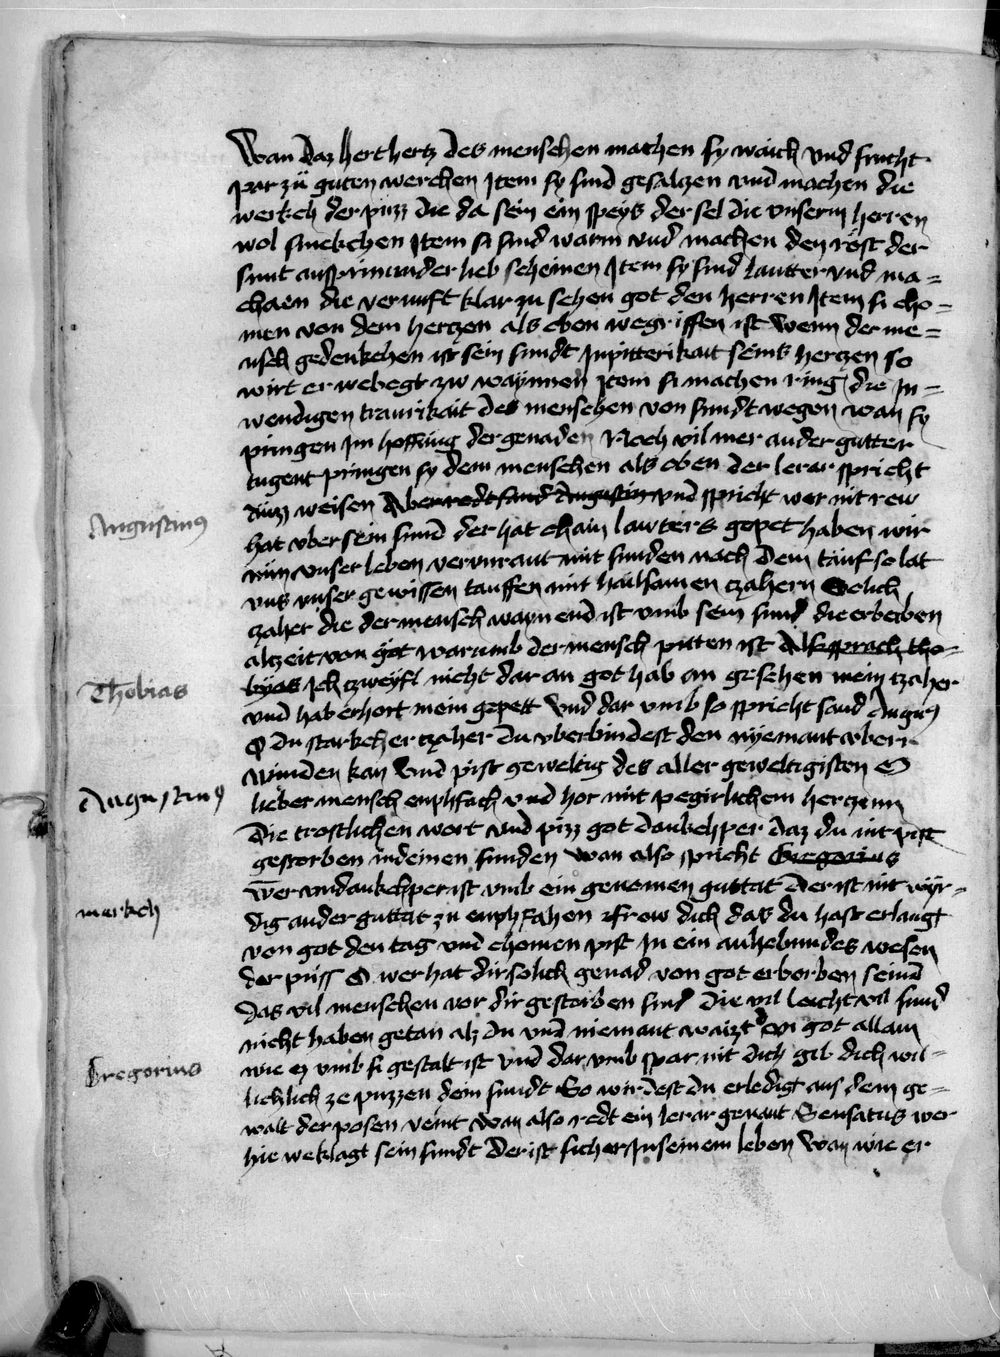 Wan daz hert hertz des menschen machen sy waich vnd frucht
par zü guten wercken Item sy sind gesalczen vnd machen die
werkch der puzz die da sein ein speys der sel die vnserm herren
wol smekchen Item si sind warm vnd machen den rost der
sunt auspringunder lieb scheinen Item sy sind lautter vnd ma=
chaen die vernuft klar zu sehen got den herren Item si cho=
men von dem hertzen als oben wegriffen ist Wenn der me=
nsch gedenkchen ist sein sundt In pitterikait seins hertzen so
wirt er webegt zw waynnen Item si machen ring die In=
wendigen traurikait des menschen von sundt wegen wan sy
pringen Im hoffnug der genaden Noch vil mer ander gutter
tugent pringen sy dem menschen als oben der lerar spricht
Augustinus
auzz weisen Aber redt sand Augustin vnd spricht wer nit rew
hat vber sein sund der hat chain lawters gepet haben wir
nun vnser leben vervnraint mit sunden nach dem tauf so lat
vns vnser gewissen tauffen mit hailsamen czahern Solich
czaher die der mensch waynend ist vmb sein sund die erberben
alczeit von got warumb der mensch pitten ist Als sprach tho=
Thobias
byas Ich czweyfl nicht dar an got hab an gesehen mein czaher
vnd hab erhort mein gepett Vnd dar vmb so spricht sand Augus
O du starkcher czaher Du vberbindest den nyemant vber
Augustinus
winden kan Vnd pist geweltig des aller geweltigisten O
lieber mensch enphfach vnd hor mit pegirlichem hertzenn
Die trostlichen wort vnd pizz got dankchper daz du nit pist
gestorben in deinen sunden Wan also spricht Gregorius
merkch
Wer vndankchper ist vmb ein genomen guttat Der ist nit wyr=
dig ander guttat zu enphfahen frow dich das du hast erlangt
von got den tag vnd chomen pist In ein anhebundes wesen
der puss O wer hat dir solich genad von got erborben seind
das vil menschen vor dir gestorben sind Die vil leicht vil sund
nicht haben getan als du vnd niemant waizt den got allain
Gregorius
wie es vmb si gestalt ist Vnd dar vmb spar nit dich gib dich wil=
lichlich ze puzzen dein sundt So wirdest du erledigt aus dem ge=
walt der posen veint Wan also redt ein lerar genant Sensatus wer
hie weklagt sein sundt Der ist sicher In seinem leben Wan wie er